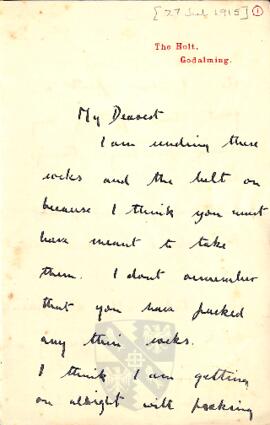 [27 July 1915] 1
The Holt,
Godalming.
My Dearest
I am sending these
socks and the belt on
because I think you must
have meant to take
them. I dont remember
that you have packed
any thin socks.
I think I am getting
on alright with packing